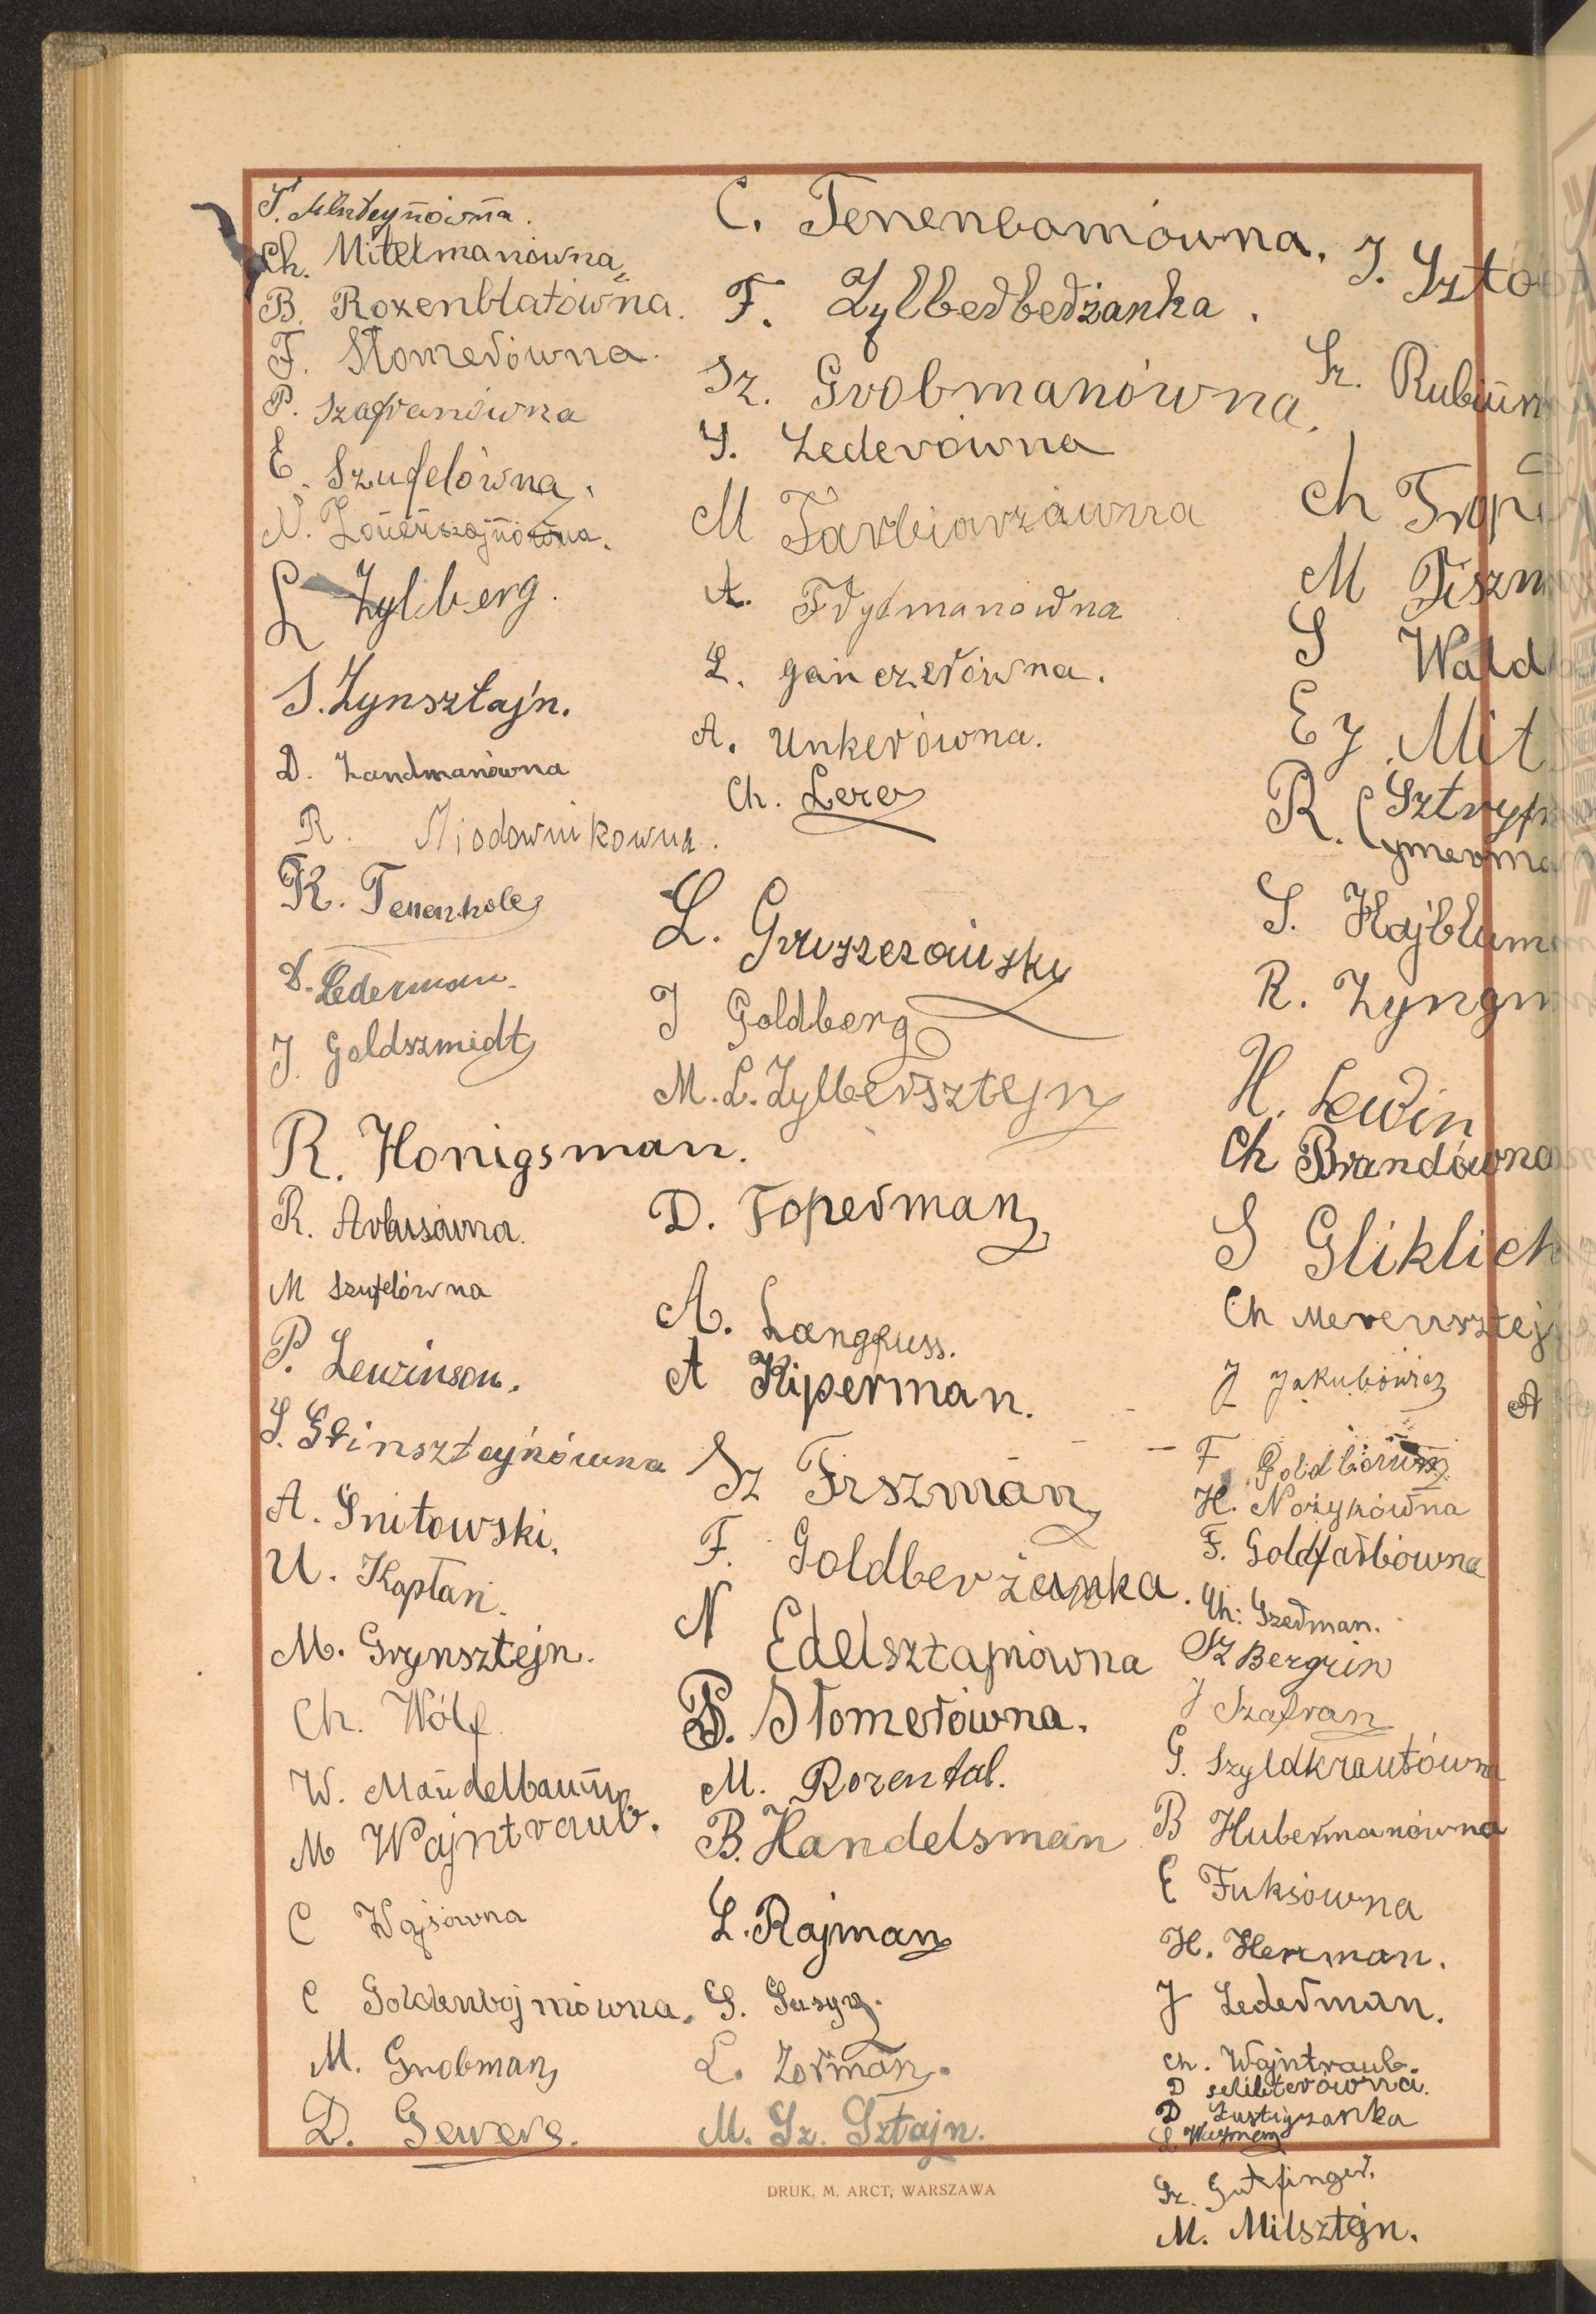 Ch. Mitelmanówna,
B. Rozenblatówna.
F. Słomerówna.
P. Szafranówna
E. Szufelówna.
N.
L Zylberg.
S. Zynsztajn.
D. Zandmanówna
R. Miodownikowna.
K. Tenenholc
D. Lederman.
J. Goldszmidt
R. Honigsman.
R. Arbusówna.
M Szufelówna
P. Lewinson.
S. Glinsztejnówna
A. Snitowski.
U. Kapłan.
M. Grynsztejn.
Ch. Wólf
W. Mandelbaum.
M Wajntraub.
C Wajsówna
C Goldenbojmówna.
M. Grobman
D. Gewerc.
C. Tenenbomówna.
F. Zylberberżanka.
Sz. Grobmanówna.
S. Lederówna
M Farbiarzówna
A. Frydmanówna
L. Ganczerówna.
A. Unkerówna.
Ch. Lerer
L. Gruszczański
J Goldberg
M. L. Zylbersztejn
D. Toperman
A. Langfuss.
A Kiperman.
Sz Firszman
F. Goldberżanka.
N Edelsztajnówna
P. Słomerówna.
M. Rozental.
B. Handelsman
L. Rajman
G.
L. Zorman.
M. Sz. Sztajn.
J. Szto
Sz. Rubin
Ch Trop
M Fiszm
S Wald
E J. Mit
R. Sztryf
Cymerma
S. Hajblum
R. Zyngm
H. Lewin
Ch Brandówna
S Gliklich
Ch Merensztej
J Jakubowicz
A
F
H. Nożykówna
F. Goldfarbówna
Ch. Szerman.
Sz Bergrin
J Szafran
G. Szyldkrautówna
B Hubermanówna
E Fuksówna
H. Herman.
J Lederman.
Ch. Wajntraub.
D
D Lustigzanka
Sz. Gutfinger.
M. Milsztejn.
DRUK. M. ARCT, WARSZAWA